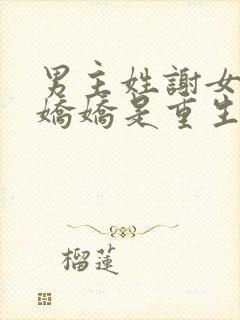 男主姓謝女
嬌嬌是重生
榴蓮